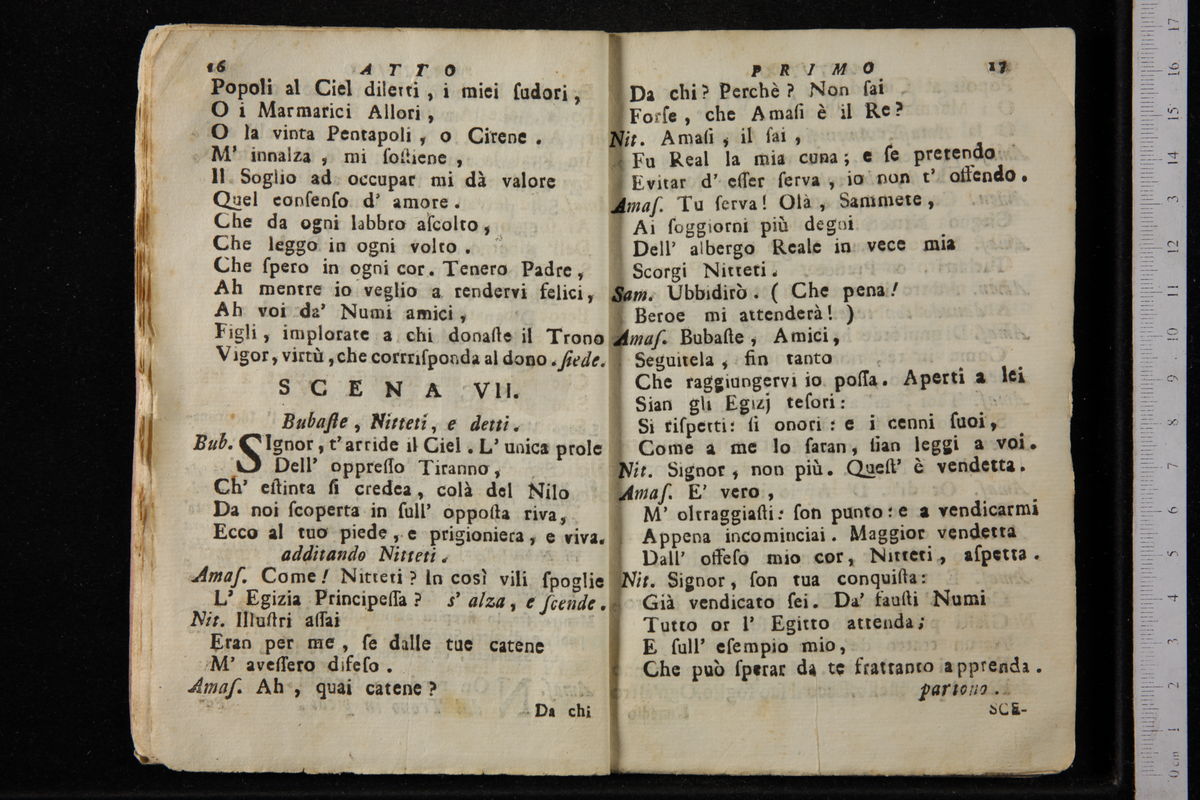 16 ATTO
Popoli al Ciel diletti, i miei ſudori,
O i Marmarici Allori,
O la vinta Pentapoli, o Cirene.
M' innalza, mi ſoſtiene,
Il Soglio ad occupar mi dà valore
Quel conſenſo d' amore.
Che da ogni labbro aſcolto,
Che leggo in ogni volto.
Che ſpero in ogni cor. Tenero Padre,
Ah mentre io veglio a rendervi felici,
Ah voi da' Numi amici,
Figli, implorate a chi donaſte il Trono
Vigor, virtù, che corrriſponda al dono. ſiede.
SCENA VII.
Bubaſte, Nitteti, e detti.
Bub. SIgnor, t'arride il Ciel. L' unica prole
Dell' oppreſſo Tiranno,
Ch' eſtinta ſi credea, colà del Nilo
Da noi ſcoperta in ſull' oppoſta riva,
Ecco al tuo piede, e prigioniera, e viva.
additando Nitteti.
Amaſ. Come! Nitteti? In così vili ſpoglie
L' Egizia Principeſſa? s' alza, e ſcende.
Nit. Illuſtri aſſai
Eran per me, ſe dalle tue catene
M' aveſſero difeſo.
Amaſ. Ah, quai catene?
Da chi
PRIMO 17
Da chi? Perchè? Non ſai
Forſe, che Amaſi è il Re?
Nit. Amaſi, il ſai,
Fu Real la mia cuna; e ſe pretendo
Evitar d' eſſer ſerva, io non t' offendo.
Amaſ. Tu ſerva! Olà, Sammete,
Ai ſoggiorni più degni
Dell' albergo Reale in vece mia
Scorgi Nitteti.
Sam. Ubbidirò. ( Che pena!
Beroe mi attenderà! )
Amaſ. Bubaſte, Amici,
Seguitela, fin tanto
Che raggiungervi io poſſa. Aperti a lei
Sian gli Egizj teſori:
Si riſpetti: ſi onori: e i cenni ſuoi,
Come a me lo ſaran, ſian leggi a voi.
Nit. Signor, non più. Queſt' è vendetta.
Amaſ. E' vero,
M' oltraggiaſti: ſon punto: e a vendicarmi
Appena incominciai. Maggior vendetta
Dall' offeſo mio cor, Nitteti, aſpetta.
Nit. Signor, ſon tua conquiſta:
Già vendicato ſei. Da' fauſti Numi
Tutto or l' Egitto attenda;
E ſull' eſempio mio,
Che può ſperar da te frattanto apprenda.
partono.
SCE-